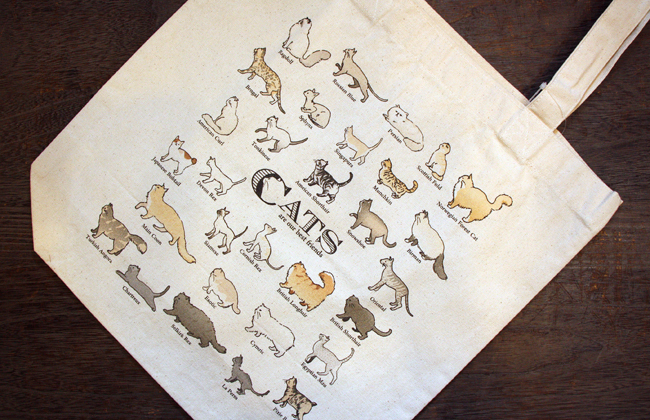 Ragdoll
Bengal
Russian Blue
American Curl
Sphynx
Persian
Tonkinese
Singapura
Scottish Fold
Japanese Bobtail
Devon Rex
American Shorthair
Munchkin
Norwegian Forest Cat
CATS
are our best friends
Maine Coon
Siamese
Cornish Rex
Birman
Turkish Angora
Exotic
British Longhair
Oriental
Chartreux
Selkirk Rex
Cymric
British Shorthair
Egyptian Mau
La Perm
Pixie